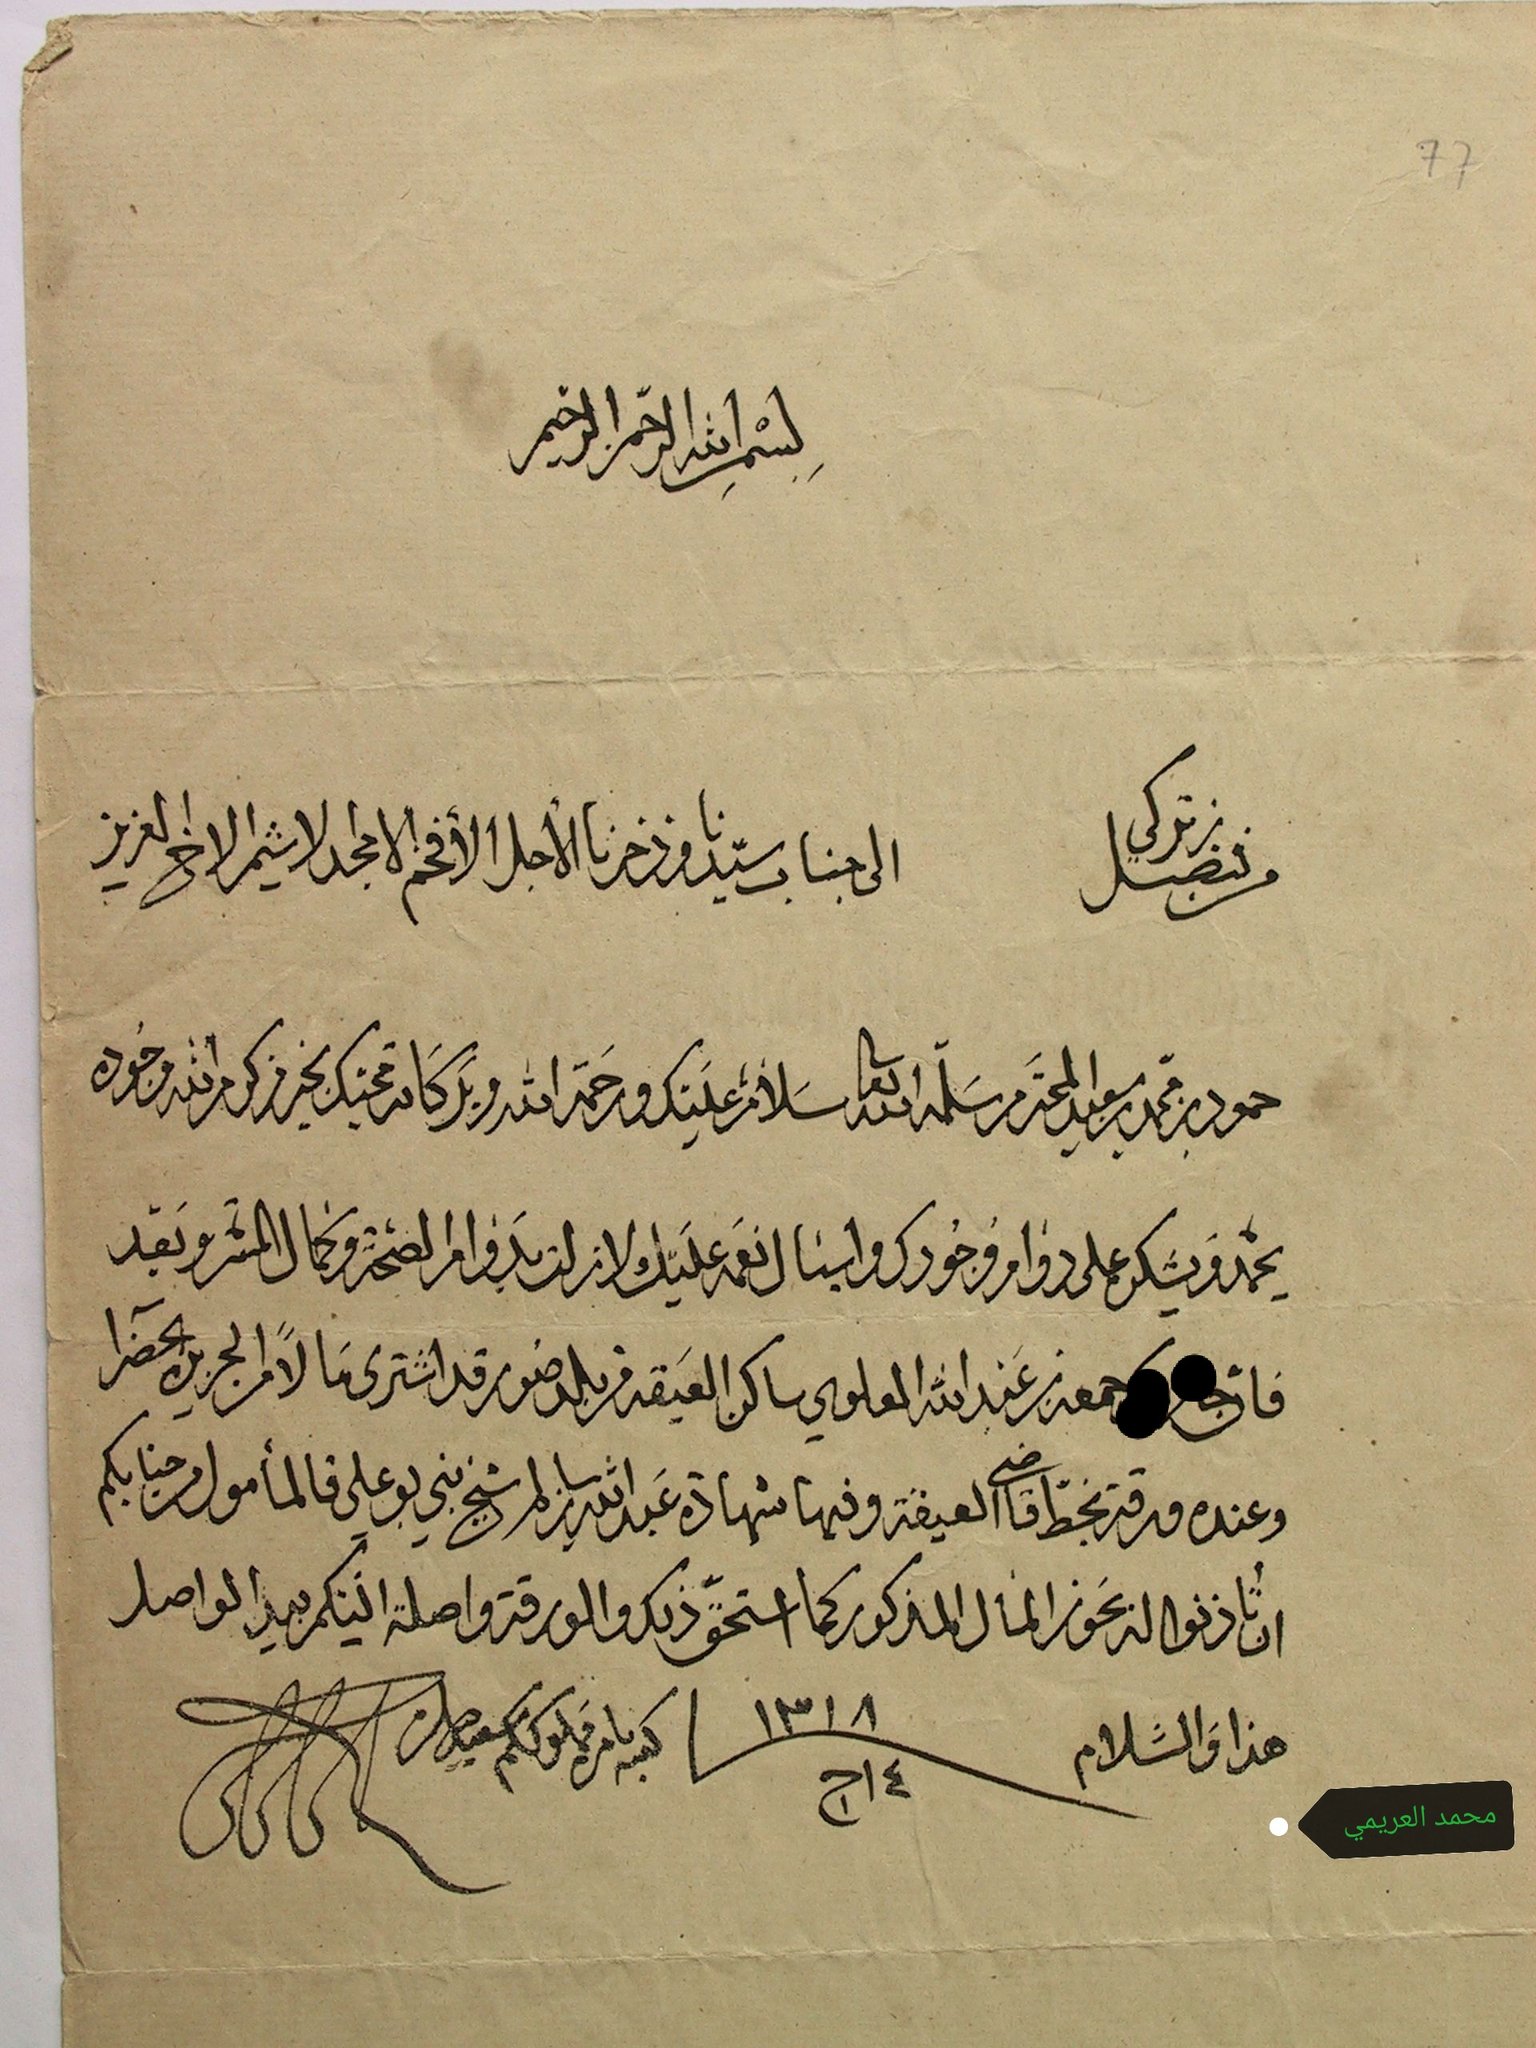 77
بسم الله الرحمن الرحيم
من فيصل بن تركي
الى جناب سيّدنا وذخرنا الأجل الأفخم الامجد الاشيم الاخ العزيز
حمود بن محمد بن سعيد المحترم سلّمه الله تعالى سلام عليك ورحمة الله وبركاته محبك بخير من كرم الله وجوده
يحمده ويشكره على دوام وجودك واسبال نعمه عليك لا زلت بدوام الصحة وكمال المسرة وبعد
فان جمعه بن عبد الله المعلوي ساكن العيقه من بلد صور قد اشترى مالاً من الجزيرة الخضرا
وعنده ورقة بخطّ قاضي العيقة وفيها شهادة عبد الله بن سالم شيخ بني بو علي فالمأمول من جنابكم
ان تأذنوا له بحوز المال المذكور كما استحقّ ذلك والورقة واصلة اليكم بيد الواصل
هذا والسّلام
١٣١٨
١٤ ج١
كتبه بامره مملوككم سعيد
محمد العريمي